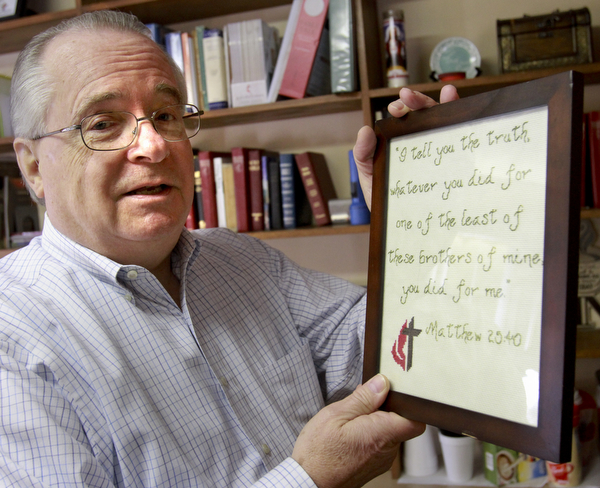 "I tell you the truth,
whatever you did for
one of the least of
these brothers of mine,
you did for me."
Matthew 25:40